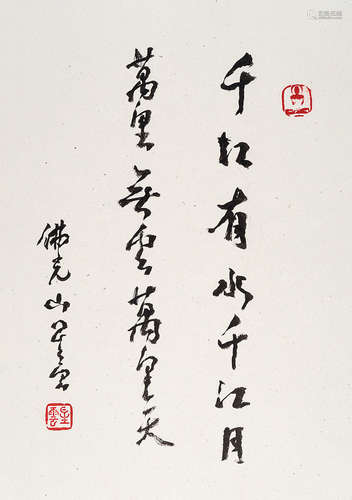 千江有水千江月
萬里無雲萬里天
佛光山星雲
星雲